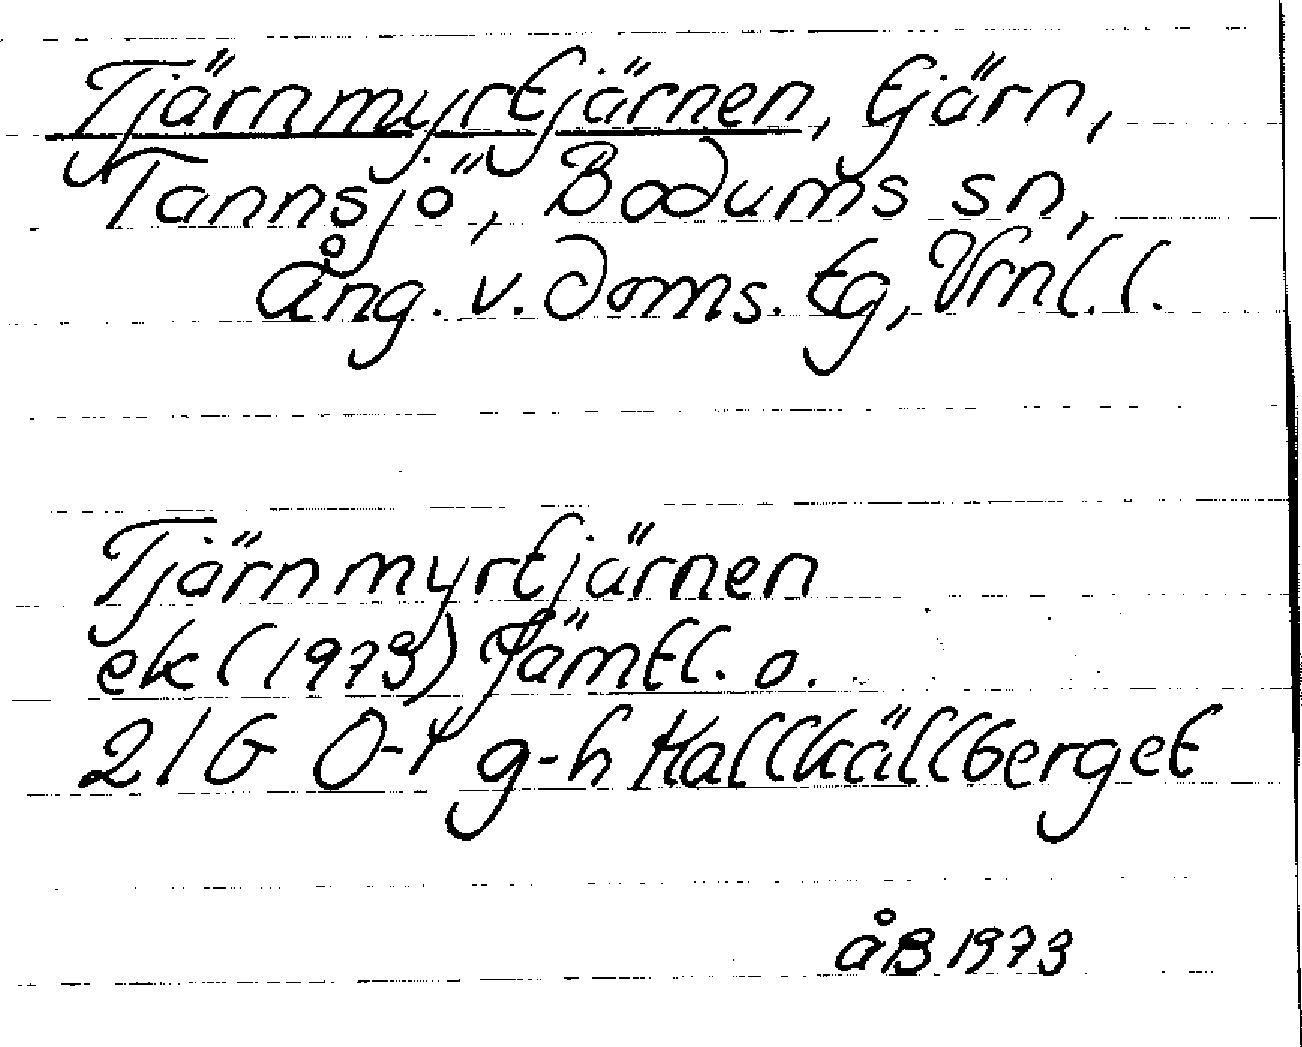 Tjärnmyrtjärnen, tjärn,
Tannsjö, Bodums sn,
Ång. v. doms. tg, Vrnl. l.
Tjärnmyrtjärnen
ek (1973) Jämtl. o.
21G 0-1 g-h Kallkällberget
åB 1973